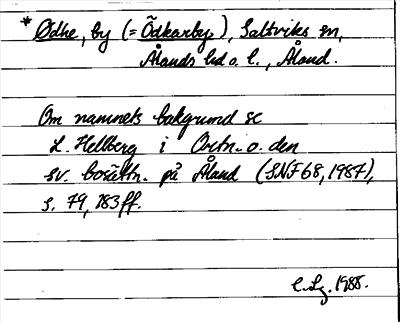 * Ödhe, by (= Ödkarby), Saltviks sn,
Ålands hd o. l., Åland.
Om namnets bakgrund se
L. Hellberg i Ortn. o. den
sv. bosättn. på Åland (SNF 68, 1987),
s. 79, 183 ff.
1988.